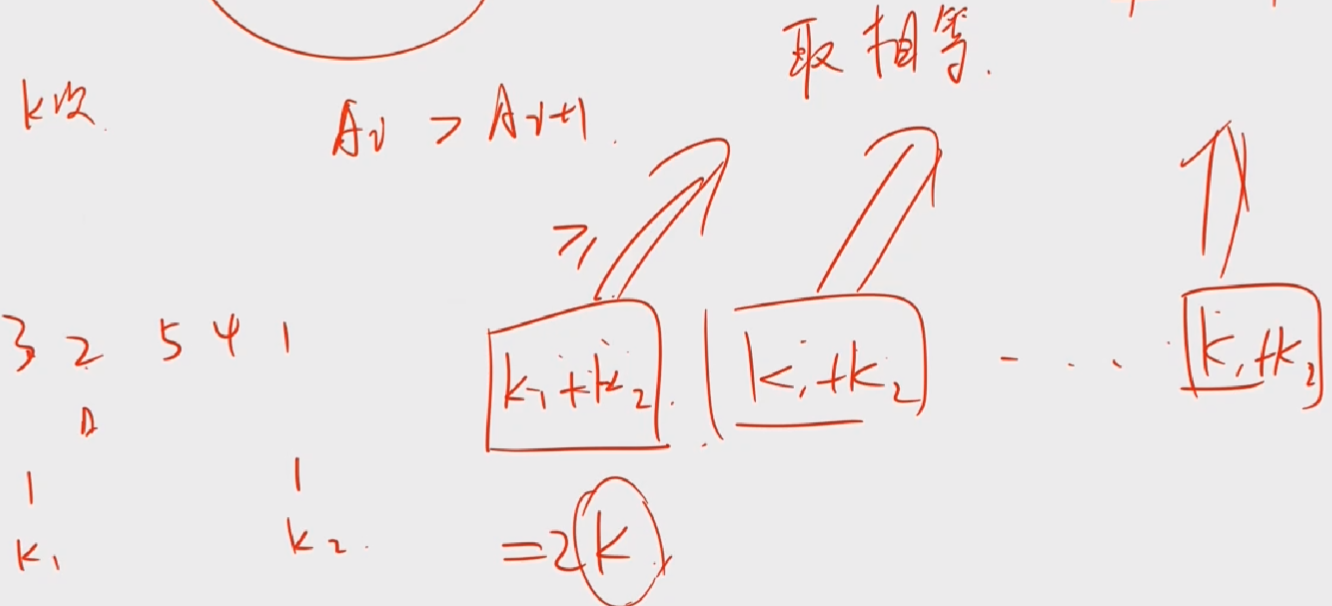 取相等.
k次.
Ai > Ai+1.
≥
3 2 5 4 1
k₁+k₂. k₁+k₂ - . . . k₁+k₂
1 1
k₁ k₂.
=2k